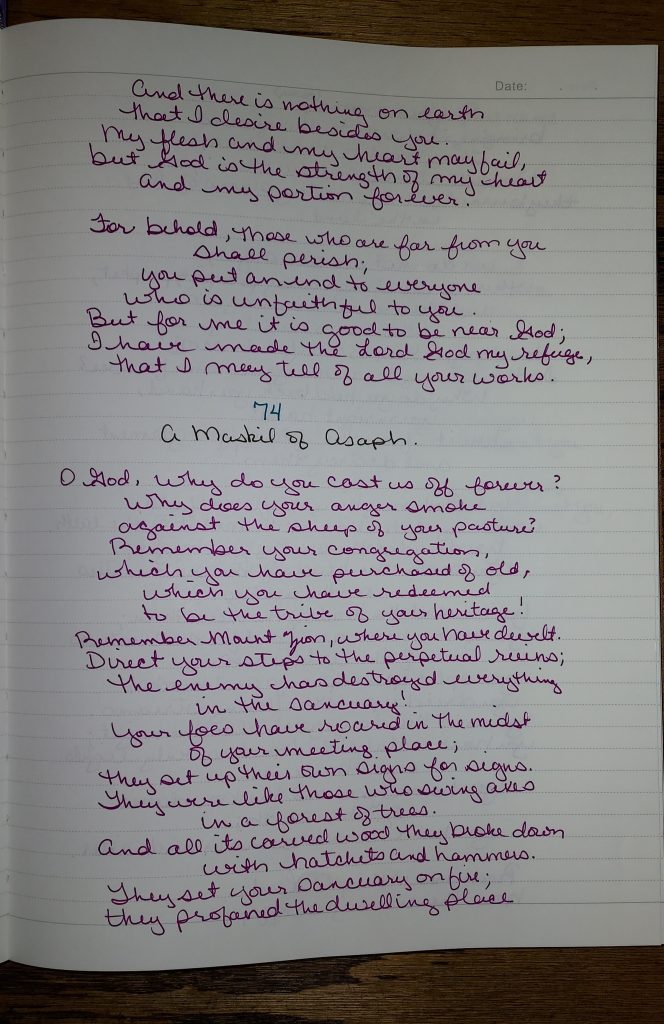 Date:
And there is nothing on earth
that I desire besides you.
My flesh and my heart may fail,
but God is the strength of my heart
and my portion forever.
For behold, those who are far from you
shall perish;
you put an end to everyone
who is unfaithful to you.
But for me it is good to be near God;
I have made the Lord God my refuge,
that I may tell of all your works.
74
A Maskil of Asaph.
O God, why do you cast us off forever?
Why does your anger smoke
against the sheep of your pasture?
Remember your congregation,
which you have purchased of old,
which you have redeemed
to be the tribe of your heritage!
Remember Mount Zion, where you have dwelt.
Direct your steps to the perpetual ruins;
the enemy has destroyd everything
in the sancuary!
Your foes have roared in the midst
of your meeting place;
they set up their own signs for signs.
They were like those who swing axes
in a forest of trees.
And all its carved wood they broke down
with hatchets and hammers.
They set your sancuary on fire;
they profaned the dwelling place